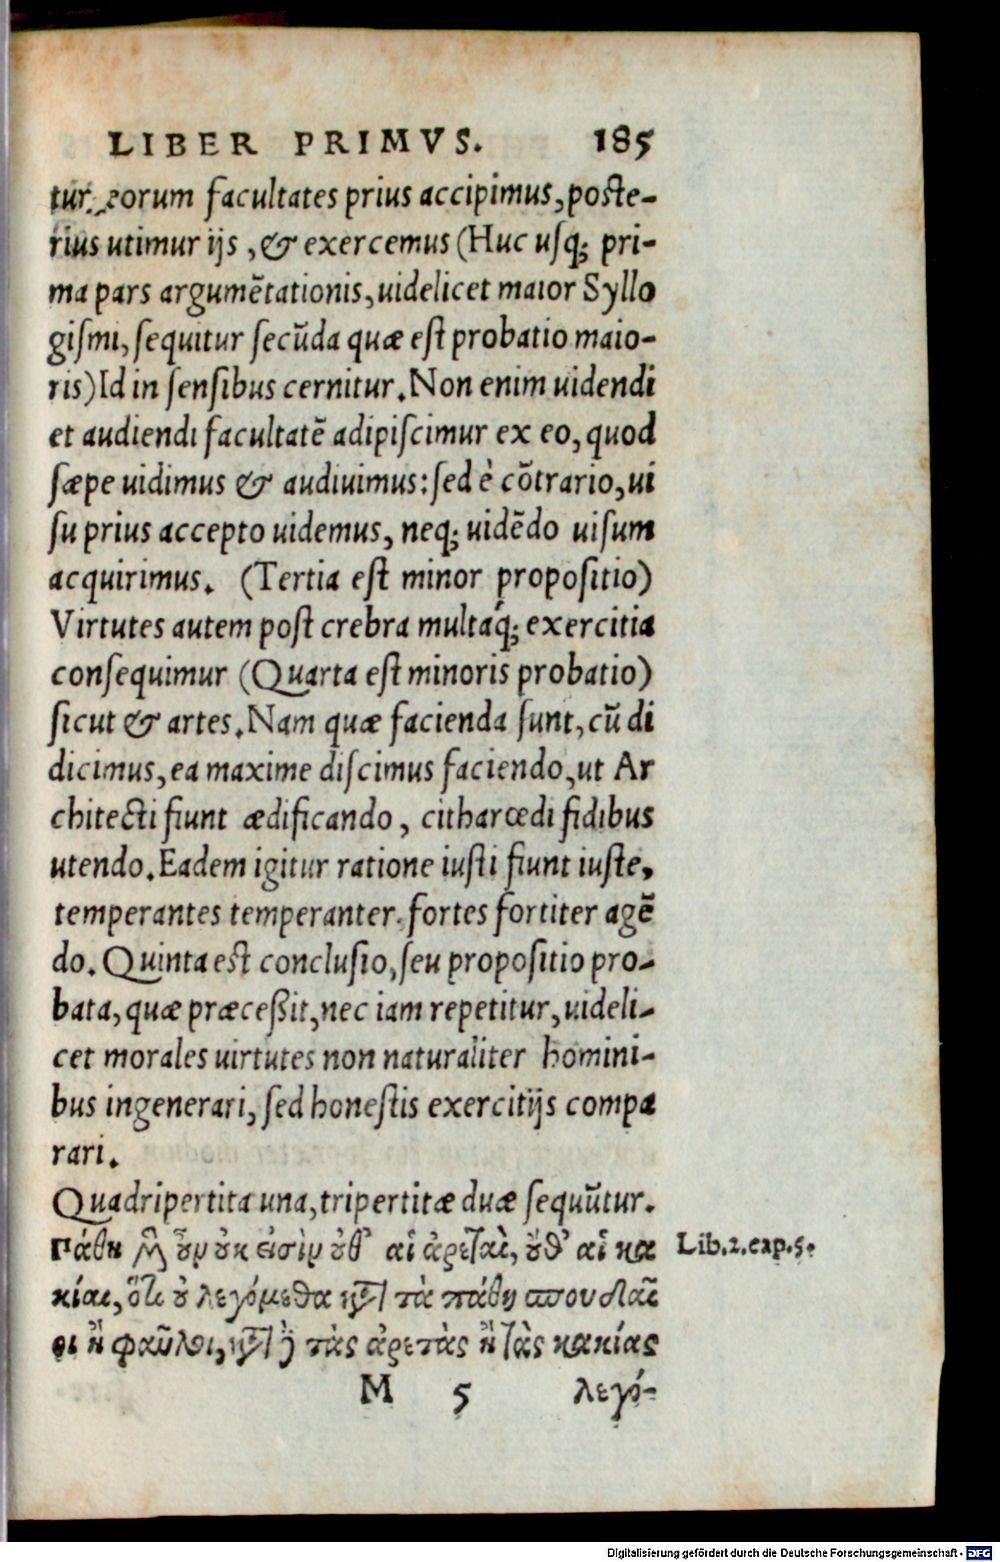 LIBER PRIMVS. 185
tur, eorum facultates prius accipimus, poste-
rius utimur ijs, & exercemus (Huc usq; pri-
ma pars argumẽtationis, uidelicet maior Syllo
gismi, sequitur secũda quæ est probatio maio-
ris) Id in sensibus cernitur. Non enim uidendi
et audiendi facultatẽ adipiscimur ex eo, quod
sæpe uidimus & audiuimus: sed è cõtrario, ui
su prius accepto uidemus, neq; uidẽdo uisum
acquirimus. (Tertia est minor propositio)
Virtutes autem post crebra multaq́; exercitia
consequimur (Quarta est minoris probatio)
sicut & artes. Nam quæ facienda sunt, cũ di
dicimus, ea maxime discimus faciendo, ut Ar
chitecti fiunt ædificando, citharœdi fidibus
utendo. Eadem igitur ratione iusti fiunt iuste,
temperantes temperanter. fortes fortiter agẽ
do. Quinta est conclusio, seu propositio pro-
bata, quæ præceßit, nec iam repetitur, uideli-
cet morales uirtutes non naturaliter homini-
bus ingenerari, sed honestis exercitijs compa
rari.
Quadripertita una, tripertitæ duæ sequũtur.
Πάθη μὲν οὖν οὐκ εἰσὶν οὔθ' αἱ ἀρεταὶ, οὔθ' αἱ κα Lib.2.cap.5.
κίαι, ὅτι οὐ λεγόμεθα κατὰ τὰ πάθη σπουδαῖ
οι ἢ φαῦλοι, κατὰ δὲ τὰς ἀρετὰς ἢ τὰς κακίας
M 5 λεγό-
Digitalisierung gefördert durch die Deutsche Forschungsgemeinschaft - DFG